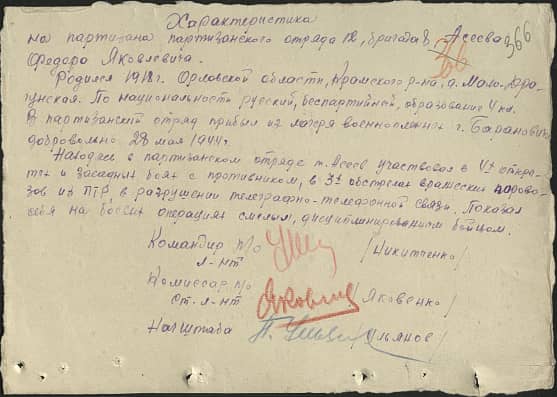 Характеристика
на партизана партизанского отряда 12, бригада 8, Асеева
366
Федора Яковлевича.
Родился 1918г. Орловской области, р-на, д. Мало-
По национальности русский, беспартийный, образование 4 кл.
В партизанский отряд прибыл из лагеря военнопленных г. Барановичи
добровольно 28 мая 1944г.
Находясь в партизанском отряде т. Асеев участвовал в откры-
тых и засадных боях с противником, в 3х обстрелах вражеских парово-
зов из ПТР, в разрушении телеграфно-телефонной связи. Показал
себя на боевых операциях смелым, дисциплинированым бойцом.
Командир п/о
л-нт
/Никитченко/
Комиссар п/о
Ст. л-нт
/Яковенко/
Нач штаба
/Ульянов/